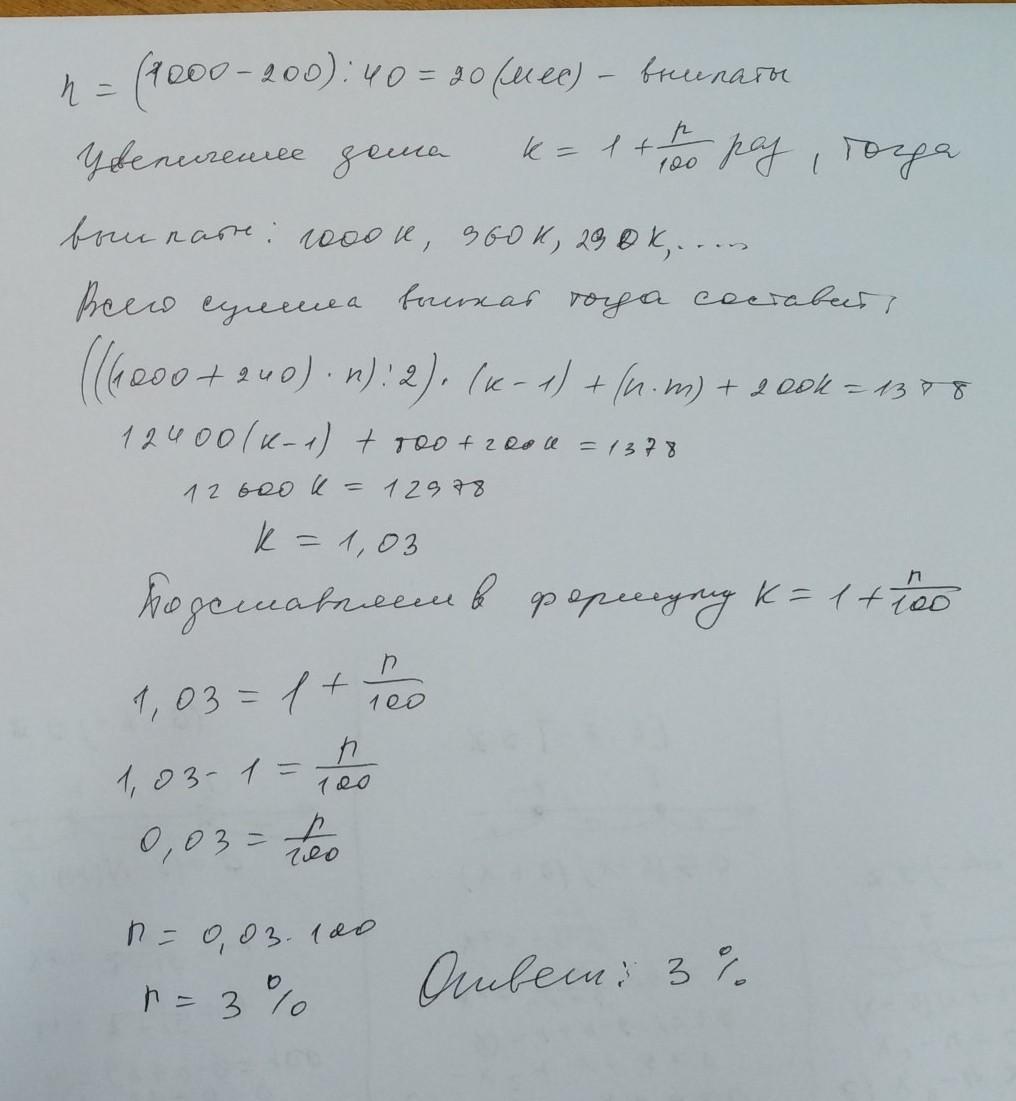 n = (1000 - 200) : 40 = 20 (мес) - выплаты
Увеличение долга k = 1 + r/100 раз, тогда
выплаты: 1000k, 960k, 290k, ....
Всего сумма выплат тогда составит:
(((1000 + 240) · n) : 2) · (k - 1) + (n · m) + 200k = 1378
12400(k - 1) + 800 + 200k = 1378
12600k = 12978
k = 1,03
Подставляем в формулу k = 1 + r/100
1,03 = 1 + r/100
1,03 - 1 = r/100
0,03 = r/100
r = 0,03 · 100
r = 3 %
Ответ: 3 %